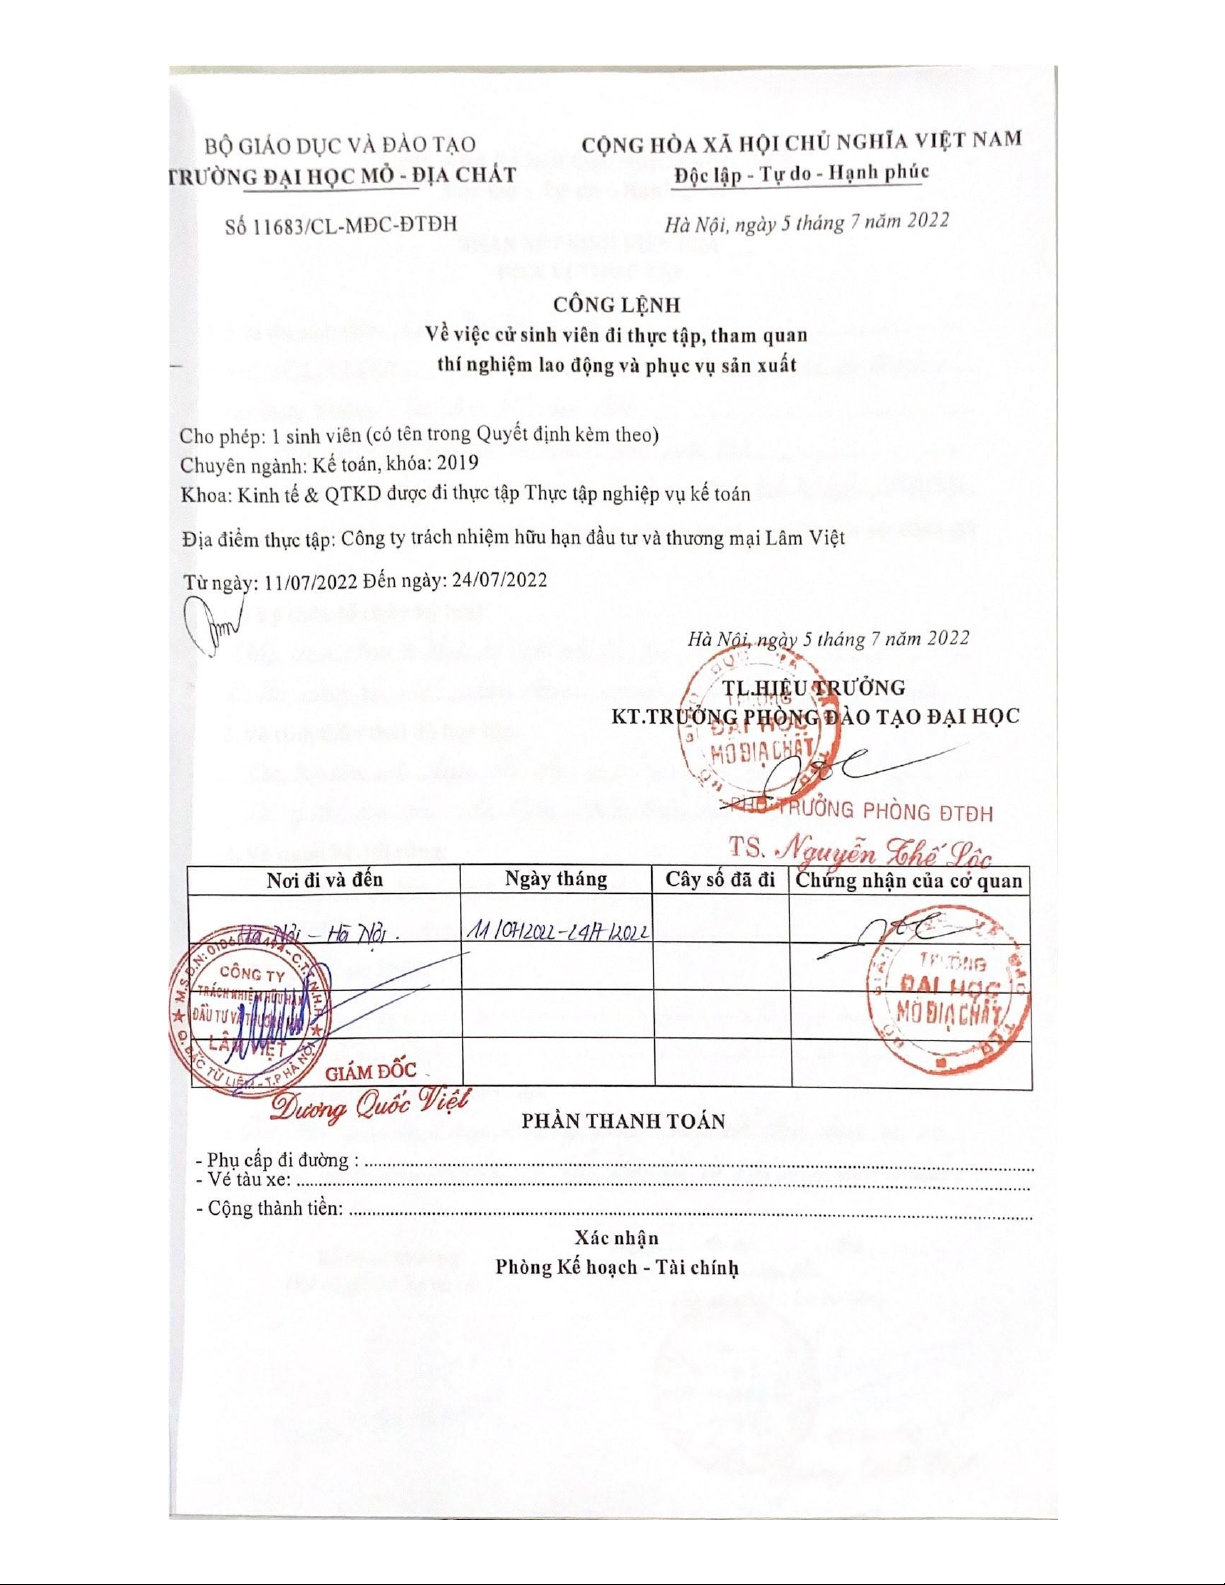 BỘ GIÁO DỤC VÀ ĐÀO TẠO
TRƯỜNG ĐẠI HỌC MỎ - ĐỊA CHẤT
CỘNG HÒA XÃ HỘI CHỦ NGHĨA VIỆT NAM
Độc lập - Tự do - Hạnh phúc
Số 11683/CL-MĐC-ĐTĐH
Hà Nội, ngày 5 tháng 7 năm 2022
CÔNG LỆNH
Về việc cử sinh viên đi thực tập, tham quan
thí nghiệm lao động và phục vụ sản xuất
Cho phép: 1 sinh viên (có tên trong Quyết định kèm theo)
Chuyên ngành: Kế toán, khóa: 2019
Khoa: Kinh tế & QTKD được đi thực tập Thực tập nghiệp vụ kế toán
Địa điểm thực tập: Công ty trách nhiệm hữu hạn đầu tư và thương mại Lâm Việt
Từ ngày: 11/07/2022 Đến ngày: 24/07/2022
Hà Nội, ngày 5 tháng 7 năm 2022
TL.HIỆU TRƯỞNG
KT.TRƯỞNG PHÒNG ĐÀO TẠO ĐẠI HỌC
TRƯỜNG
ĐẠI HỌC
MỎ ĐỊA CHẤT
PHÓ TRƯỞNG PHÒNG ĐTĐH
TS. Nguyễn Thế Lộc
Nơi đi và đến Ngày tháng Cây số đã đi Chứng nhận của cơ quan
Hà Nội - Hà Nội. 11/07/2022-24/7/2022
CÔNG TY
TRÁCH NHIỆM HỮU HẠN
ĐẦU TƯ VÀ THƯƠNG MẠI
LÂM VIỆT
Q. BẮC TỪ LIÊM - T.P HÀ NỘI
TRƯỜNG
ĐẠI HỌC
MỎ ĐỊA CHẤT
GIÁM ĐỐC
Dương Quốc Việt
PHẦN THANH TOÁN
- Phụ cấp đi đường :
- Vé tàu xe:
- Cộng thành tiền:
Xác nhận
Phòng Kế hoạch - Tài chính